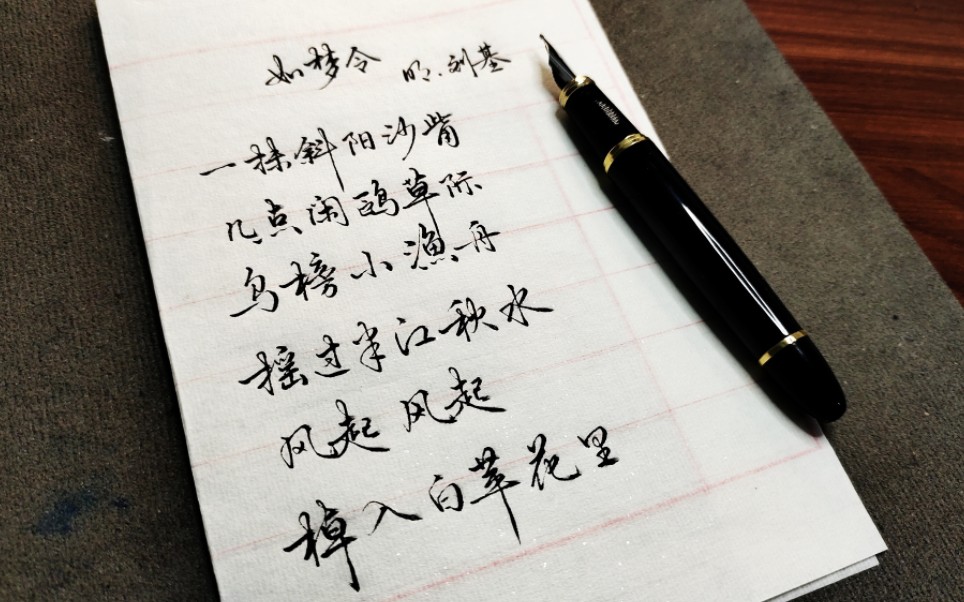 如梦令 明·刘基
一抹斜阳沙觜
几点闲鸥草际
乌榜小渔舟
摇过半江秋水
风起 风起
棹入白苹花里